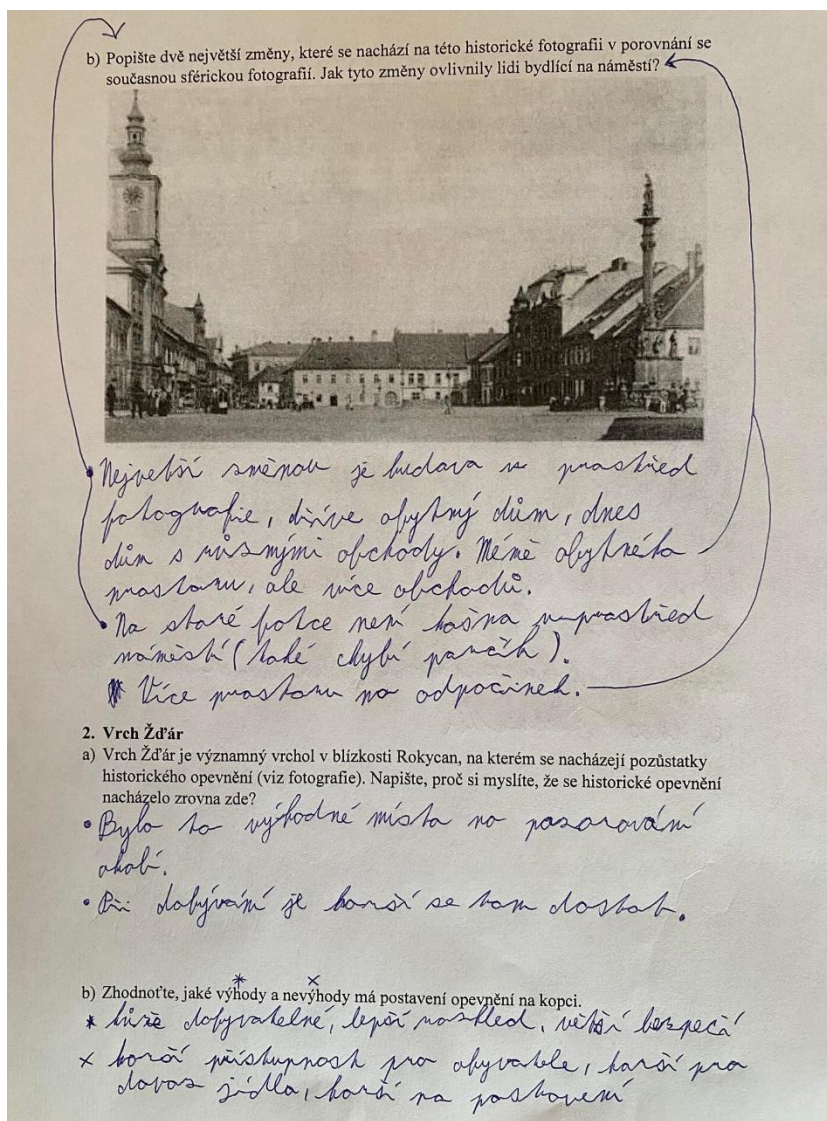 b) Popište dvě největší změny, které se nachází na této historické fotografii v porovnání se
současnou sférickou fotografií. Jak tyto změny ovlivnily lidi bydlící na náměstí?
• Největší směnou je budova u prostřed
fotografie, dříve obytný dům, dnes
dům s různými obchody. Méně obytného
prostoru, ale více obchodů.
• Na staré fotce není kašna uprostřed
náměstí (také chybí parčík).
Více prostoru na odpočinek.
2. Vrch Žďár
a) Vrch Žďár je významný vrchol v blízkosti Rokycan, na kterém se nacházejí pozůstatky
historického opevnění (viz fotografie). Napište, proč si myslíte, že se historické opevnění
nacházelo zrovna zde?
• Bylo to výhodné místo na pozorování
okolí.
• Při dobývání je horší se tam dostat.
* ×
b) Zhodnoťte, jaké výhody a nevýhody má postavení opevnění na kopci.
* hůře dobyvatelné, lepší rozhled, větší bezpečí
× horší přístupnost pro obyvatele, horší pro
dovoz jídla, horší na postavení